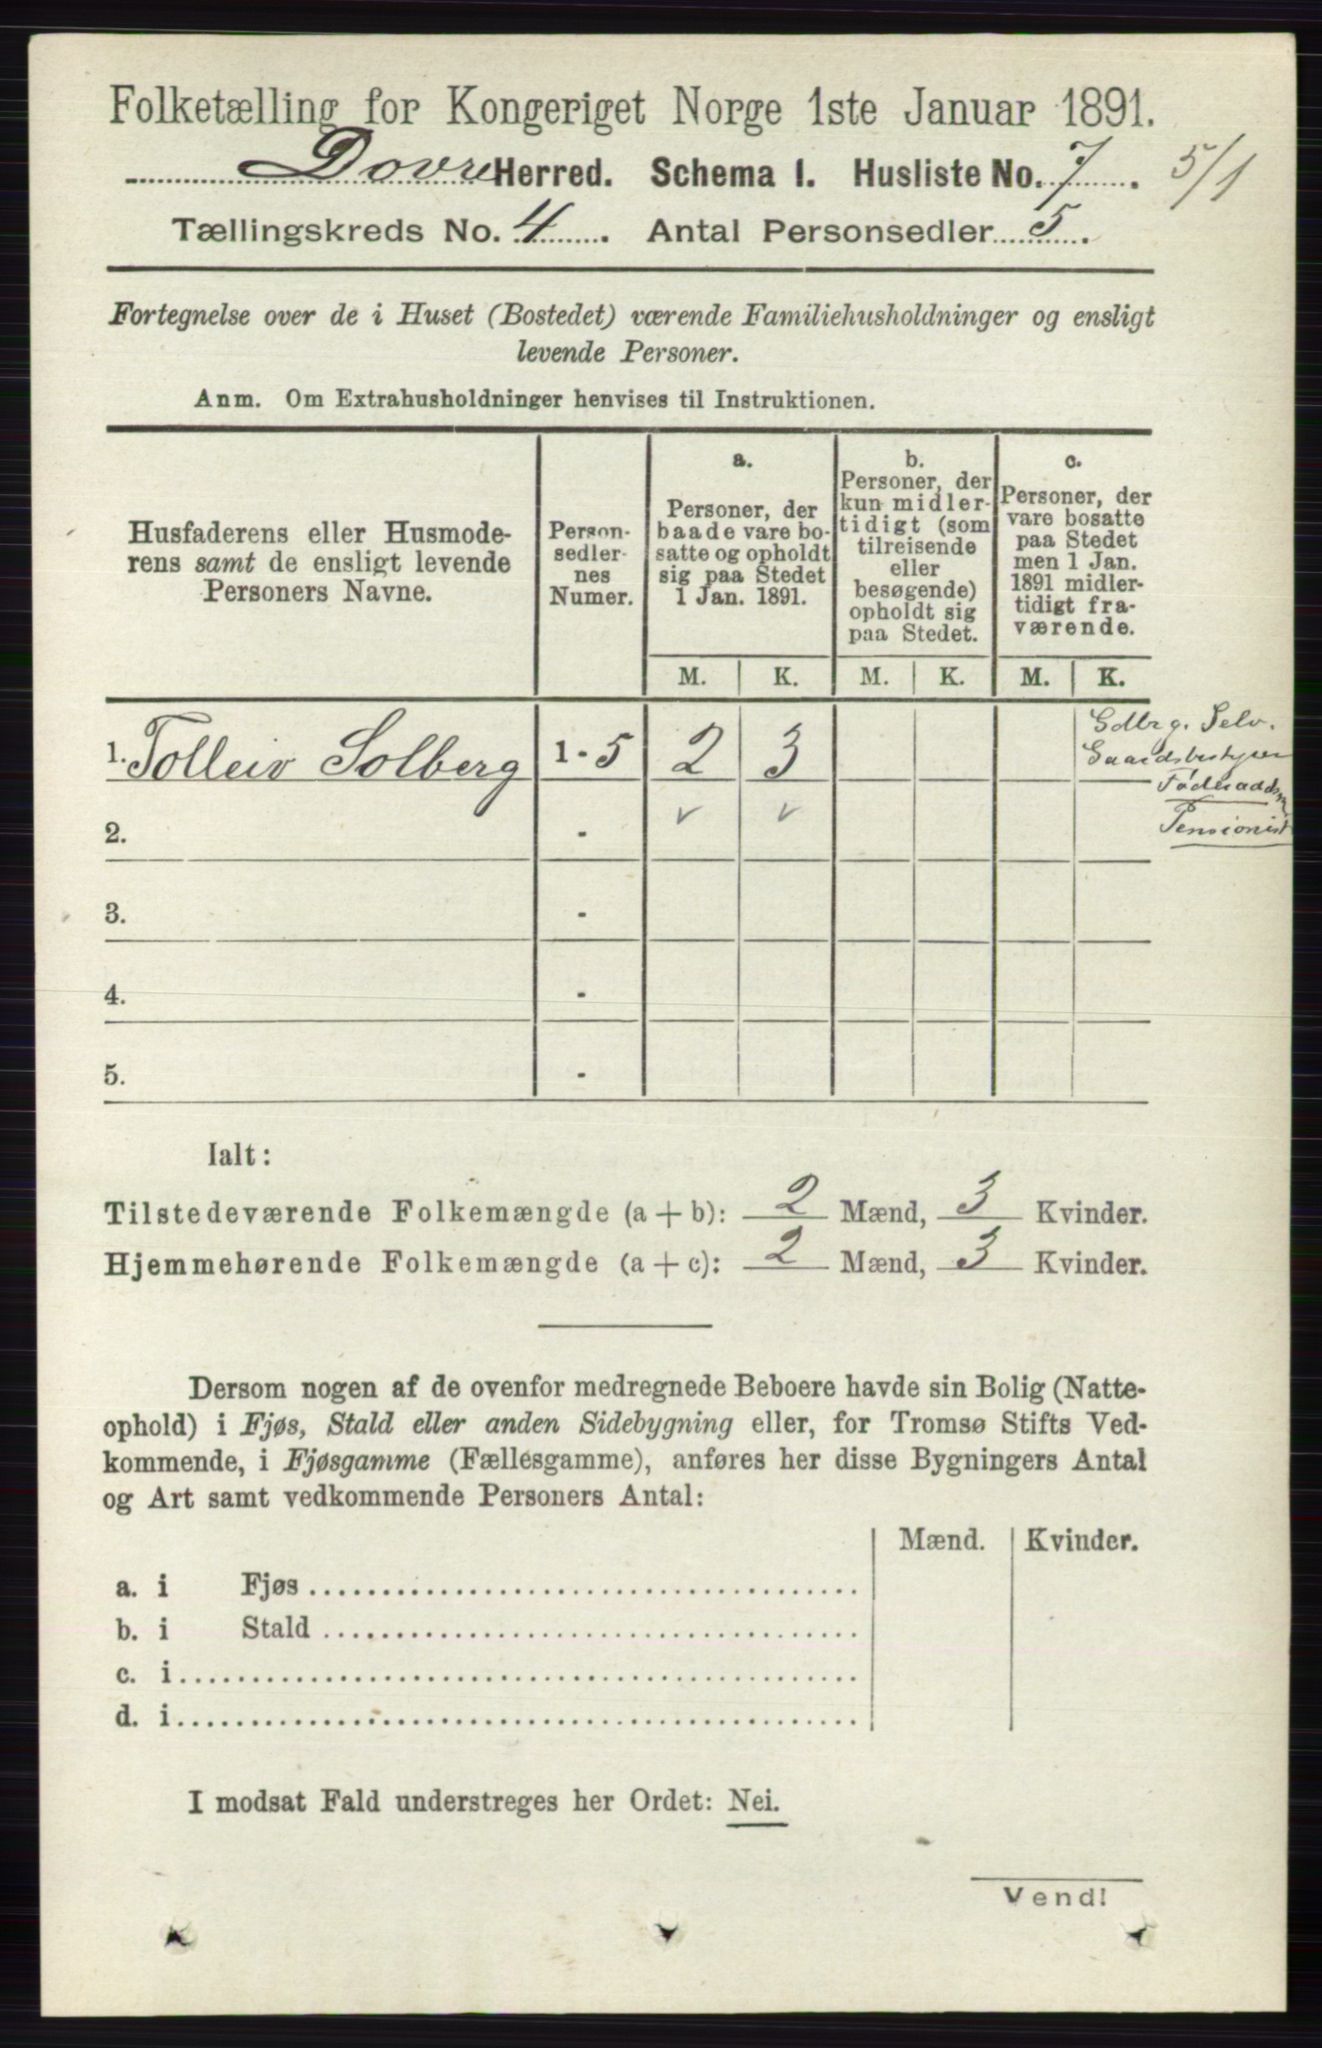 Folketælling for Kongeriget Norge 1ste Januar 1891.
Dovre Herred. Schema I. Husliste No. 7. 5/1
Tællingskreds No. 4. Antal Personsedler 5.
Fortegnelse over de i Huset (Bostedet) værende Familiehusholdninger og ensligt
levende Personer.
Anm. Om Extrahusholdninger henvises til Instruktionen.
Husfaderens eller Husmode-
rens samt de ensligt levende
Personers Navne.
Person-
sedler-
nes
Numer.
a.
Personer, der
baade vare bo-
satte og opholdt
sig paa Stedet
1 Jan. 1891.
b.
Personer, der
kun midler-
tidigt (som
tilreisende
eller
besøgende)
opholdt sig
paa Stedet.
c.
Personer, der
vare bosatte
paa Stedet
men 1 Jan.
1891 midler-
tidigt fra-
værende.
M. K. M. K. M. K.
1. Tolleiv Solberg 1 - 5 2 3
Gdbrg. Selv.
Gaardsbestyrer
Føderaadsm
Pensionist
2. -
3. -
4. -
5. -
Ialt:
Tilstedeværende Folkemængde (a + b): 2 Mænd, 3 Kvinder.
Hjemmehørende Folkemængde (a + c): 2 Mænd, 3 Kvinder.
Dersom nogen af de ovenfor medregnede Beboere havde sin Bolig (Natte-
ophold) i Fjøs, Stald eller anden Sidebygning eller, for Tromsø Stifts Ved-
kommende, i Fjøsgamme (Fællesgamme), anføres her disse Bygningers Antal
og Art samt vedkommende Personers Antal:
Mænd. Kvinder.
a. i Fjøs
b. i Stald
c. i
d. i
I modsat Fald understreges her Ordet: Nei.
Vend!